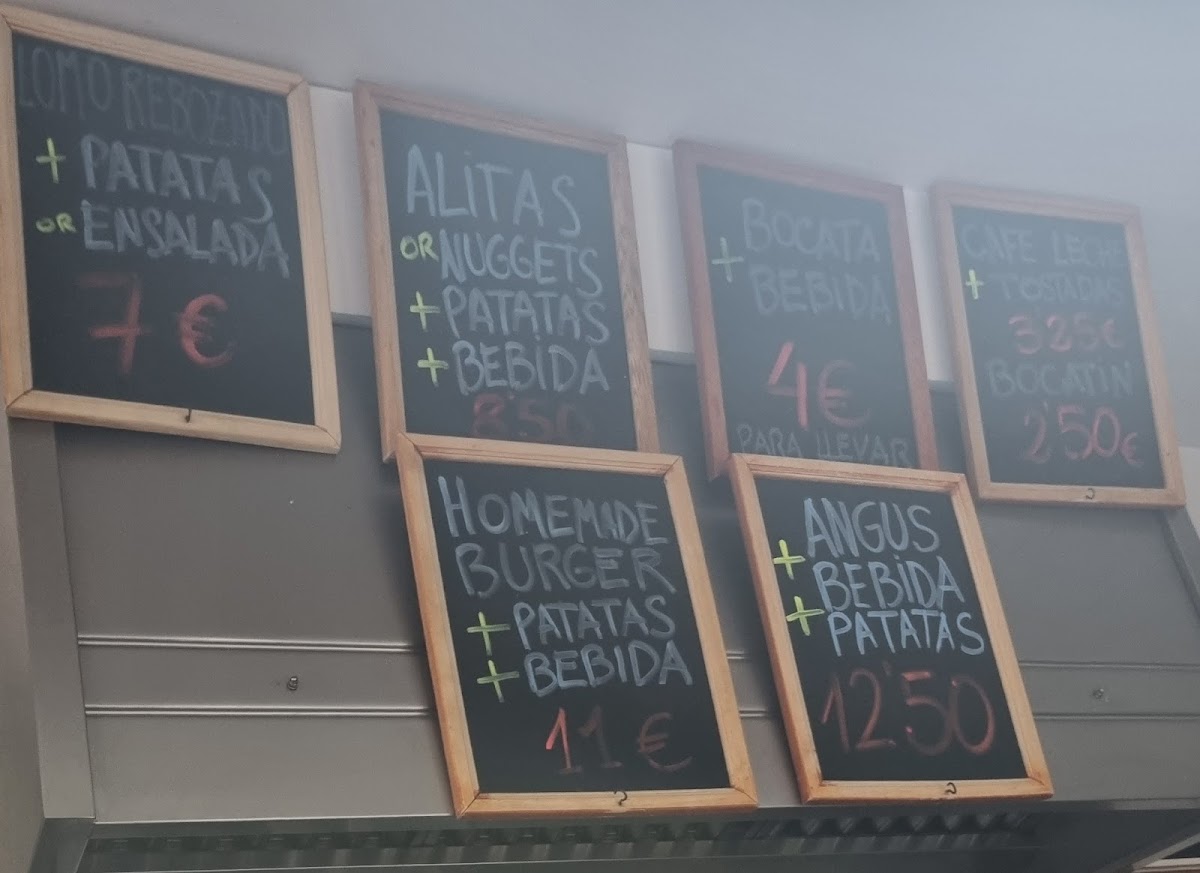 LOMO REBOZADO
+ PATATAS
OR ENSALADA
7 €
ALITAS
OR NUGGETS
+ PATATAS
+ BEBIDA
8'50
BOCATA
+ BEBIDA
4€
PARA LLEVAR
CAFE LECHE
+ TOSTADAS
3'25€
BOCATIN
2'50€
HOMEMADE
BURGER
+ PATATAS
+ BEBIDA
11 €
ANGUS
+ BEBIDA
+ PATATAS
12'50